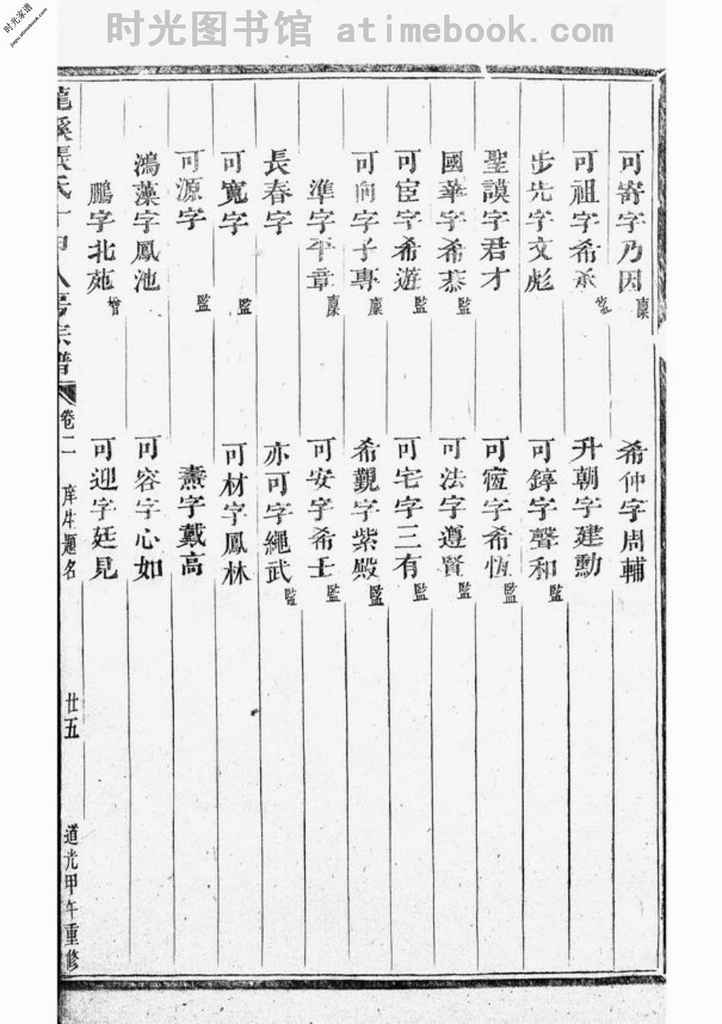 时光图书馆 atimebook.com
时光家谱
jiapu.atimebook.com
可寄字乃因 廪 希仲字周輔
可祖字希承 监 升朝字建勳
步先字文彪 可錞字聲和 監
聖謨字君才 可 字希恆 監
國華字希恭 監 可法字遵賢 監
可宦字希遊 監 可宅字三有 監
可向字子專 廪 希覲字紫殿 監
準字平章 廪 可安字希士 監
長春字 亦可字繩武 監
可寬字 監 可材字鳳林
可源字 監 燾字戴高
鴻藻字鳳池 可容字心如
鵬字北苑 增 可迎字廷見
龍溪張氏十甲八房宗譜 卷二 庠生題名 廿五 道光甲午重修